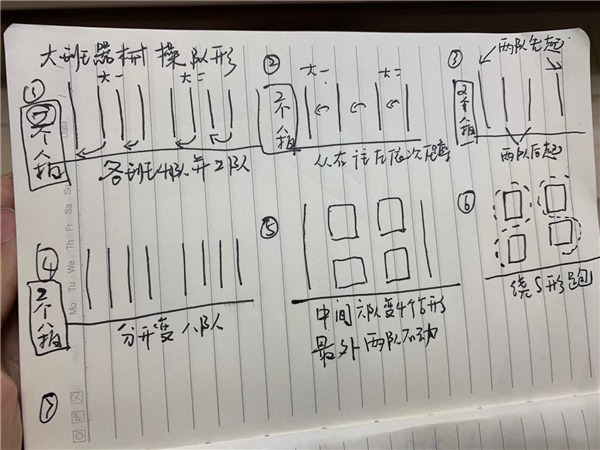 大班器械操队形
①
2个八拍
大一
大二
各班4队并2队
②
2个八拍
大一
大二
从右往左依次
③
2个八拍
两队先起
两队后起
④
2个八拍
分开变八队
⑤
中间六队变4个方形
最外两队不动
⑥
绕S形跑
⑦
Mo Tu We Th Fr Sa Su